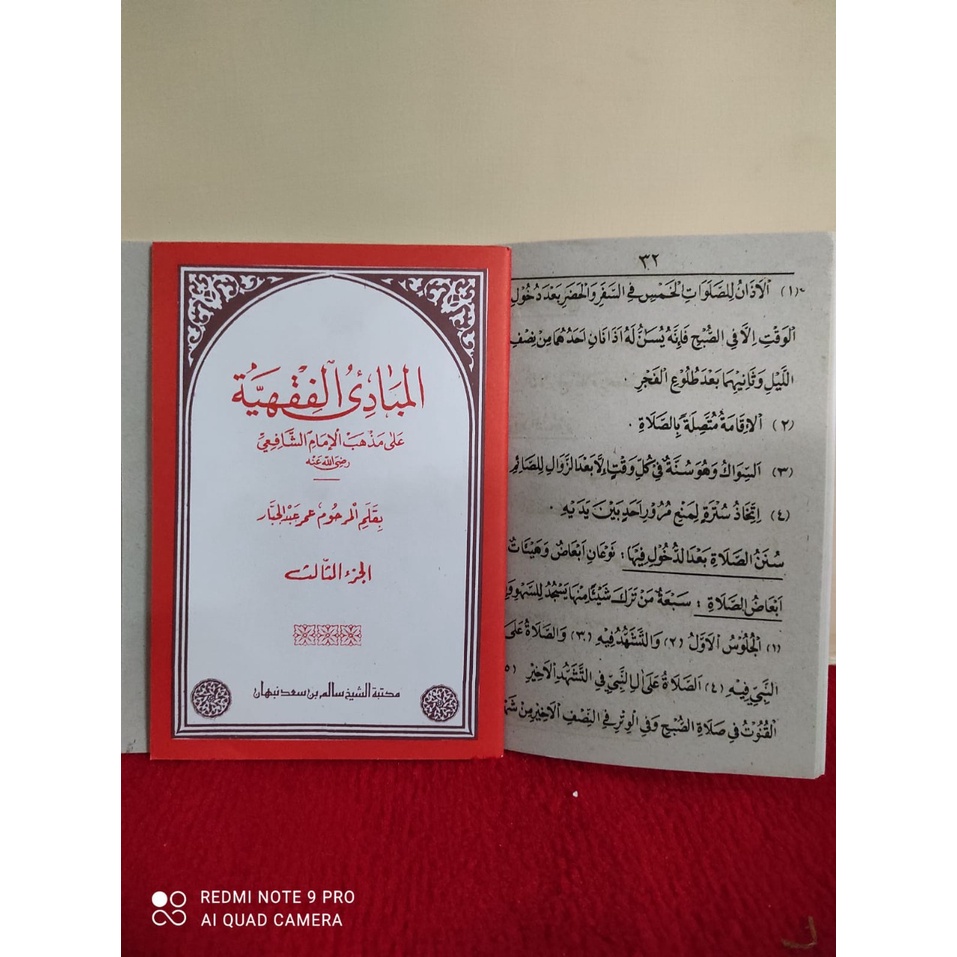 المَبَادِئُ الفِقْهِيَّة
عَلىٰ مَذْهَبِ الإِمَامِ الشَّافِعِيِّ
رَضِيَ اللهُ عَنْهُ
بِقَلَمِ المَرْحُومِ عُمَر عَبْدُ الجَبَّار
الجُزْءُ الثَّالِثُ
مكتبة الشيخ سالم بن سعد نبهان
٣٢
(١) اَلْاَذَانُ لِلصَّلَوَاتِ الْخَمْسِ فِي السَّفَرِ وَالْحَضَرِ بَعْدَ دُخُوْلِ
الْوَقْتِ اِلَّا فِي الصُّبْحِ فَاِنَّهُ يُسَنُّ لَهُ اَذَانَانِ اَحَدُهُمَا مِنْ نِصْفِ
اللَّيْلِ وَثَانِيْهِمَا بَعْدَ طُلُوْعِ الْفَجْرِ .
(٢) اَلْاِقَامَةُ مُتَّصِلَةً بِالصَّلَاةِ .
(٣) اَلسِّوَاكُ وَهُوَ سُنَّةٌ فِيْ كُلِّ وَقْتٍ اِلَّا بَعْدَ الزَّوَالِ لِلصَّائِمِ
(٤) اِتِّخَاذُ سُتْرَةٍ لِمَنْعِ مُرُوْرِ اَحَدٍ بَيْنَ يَدَيْهِ .
سُنَنُ الصَّلَاةِ بَعْدَ الدُّخُوْلِ فِيْهَا : نَوْعَانِ اَبْعَاضٌ وَهَيْئَاتٌ
اَبْعَاضُ الصَّلَاةِ : سَبْعَةٌ مَنْ تَرَكَ شَيْئًا مِنْهَا يَسْجُدُ لِلسَّهْوِ
(١) اَلْجُلُوْسُ الْاَوَّلُ (٢) وَالتَّشَهُّدُ فِيْهِ (٣) وَالصَّلَاةُ عَلَى
النَّبِيِّ فِيْهِ (٤) اَلصَّلَاةُ عَلَى اٰلِ النَّبِيِّ فِي التَّشَهُّدِ الْاَخِيْرِ (٥
اَلْقُنُوْتُ فِي صَلَاةِ الصُّبْحِ وَفِي الْوِتْرِ فِي النِّصْفِ الْاَخِيْرِ مِنْ
REDMI NOTE 9 PRO
AI QUAD CAMERA